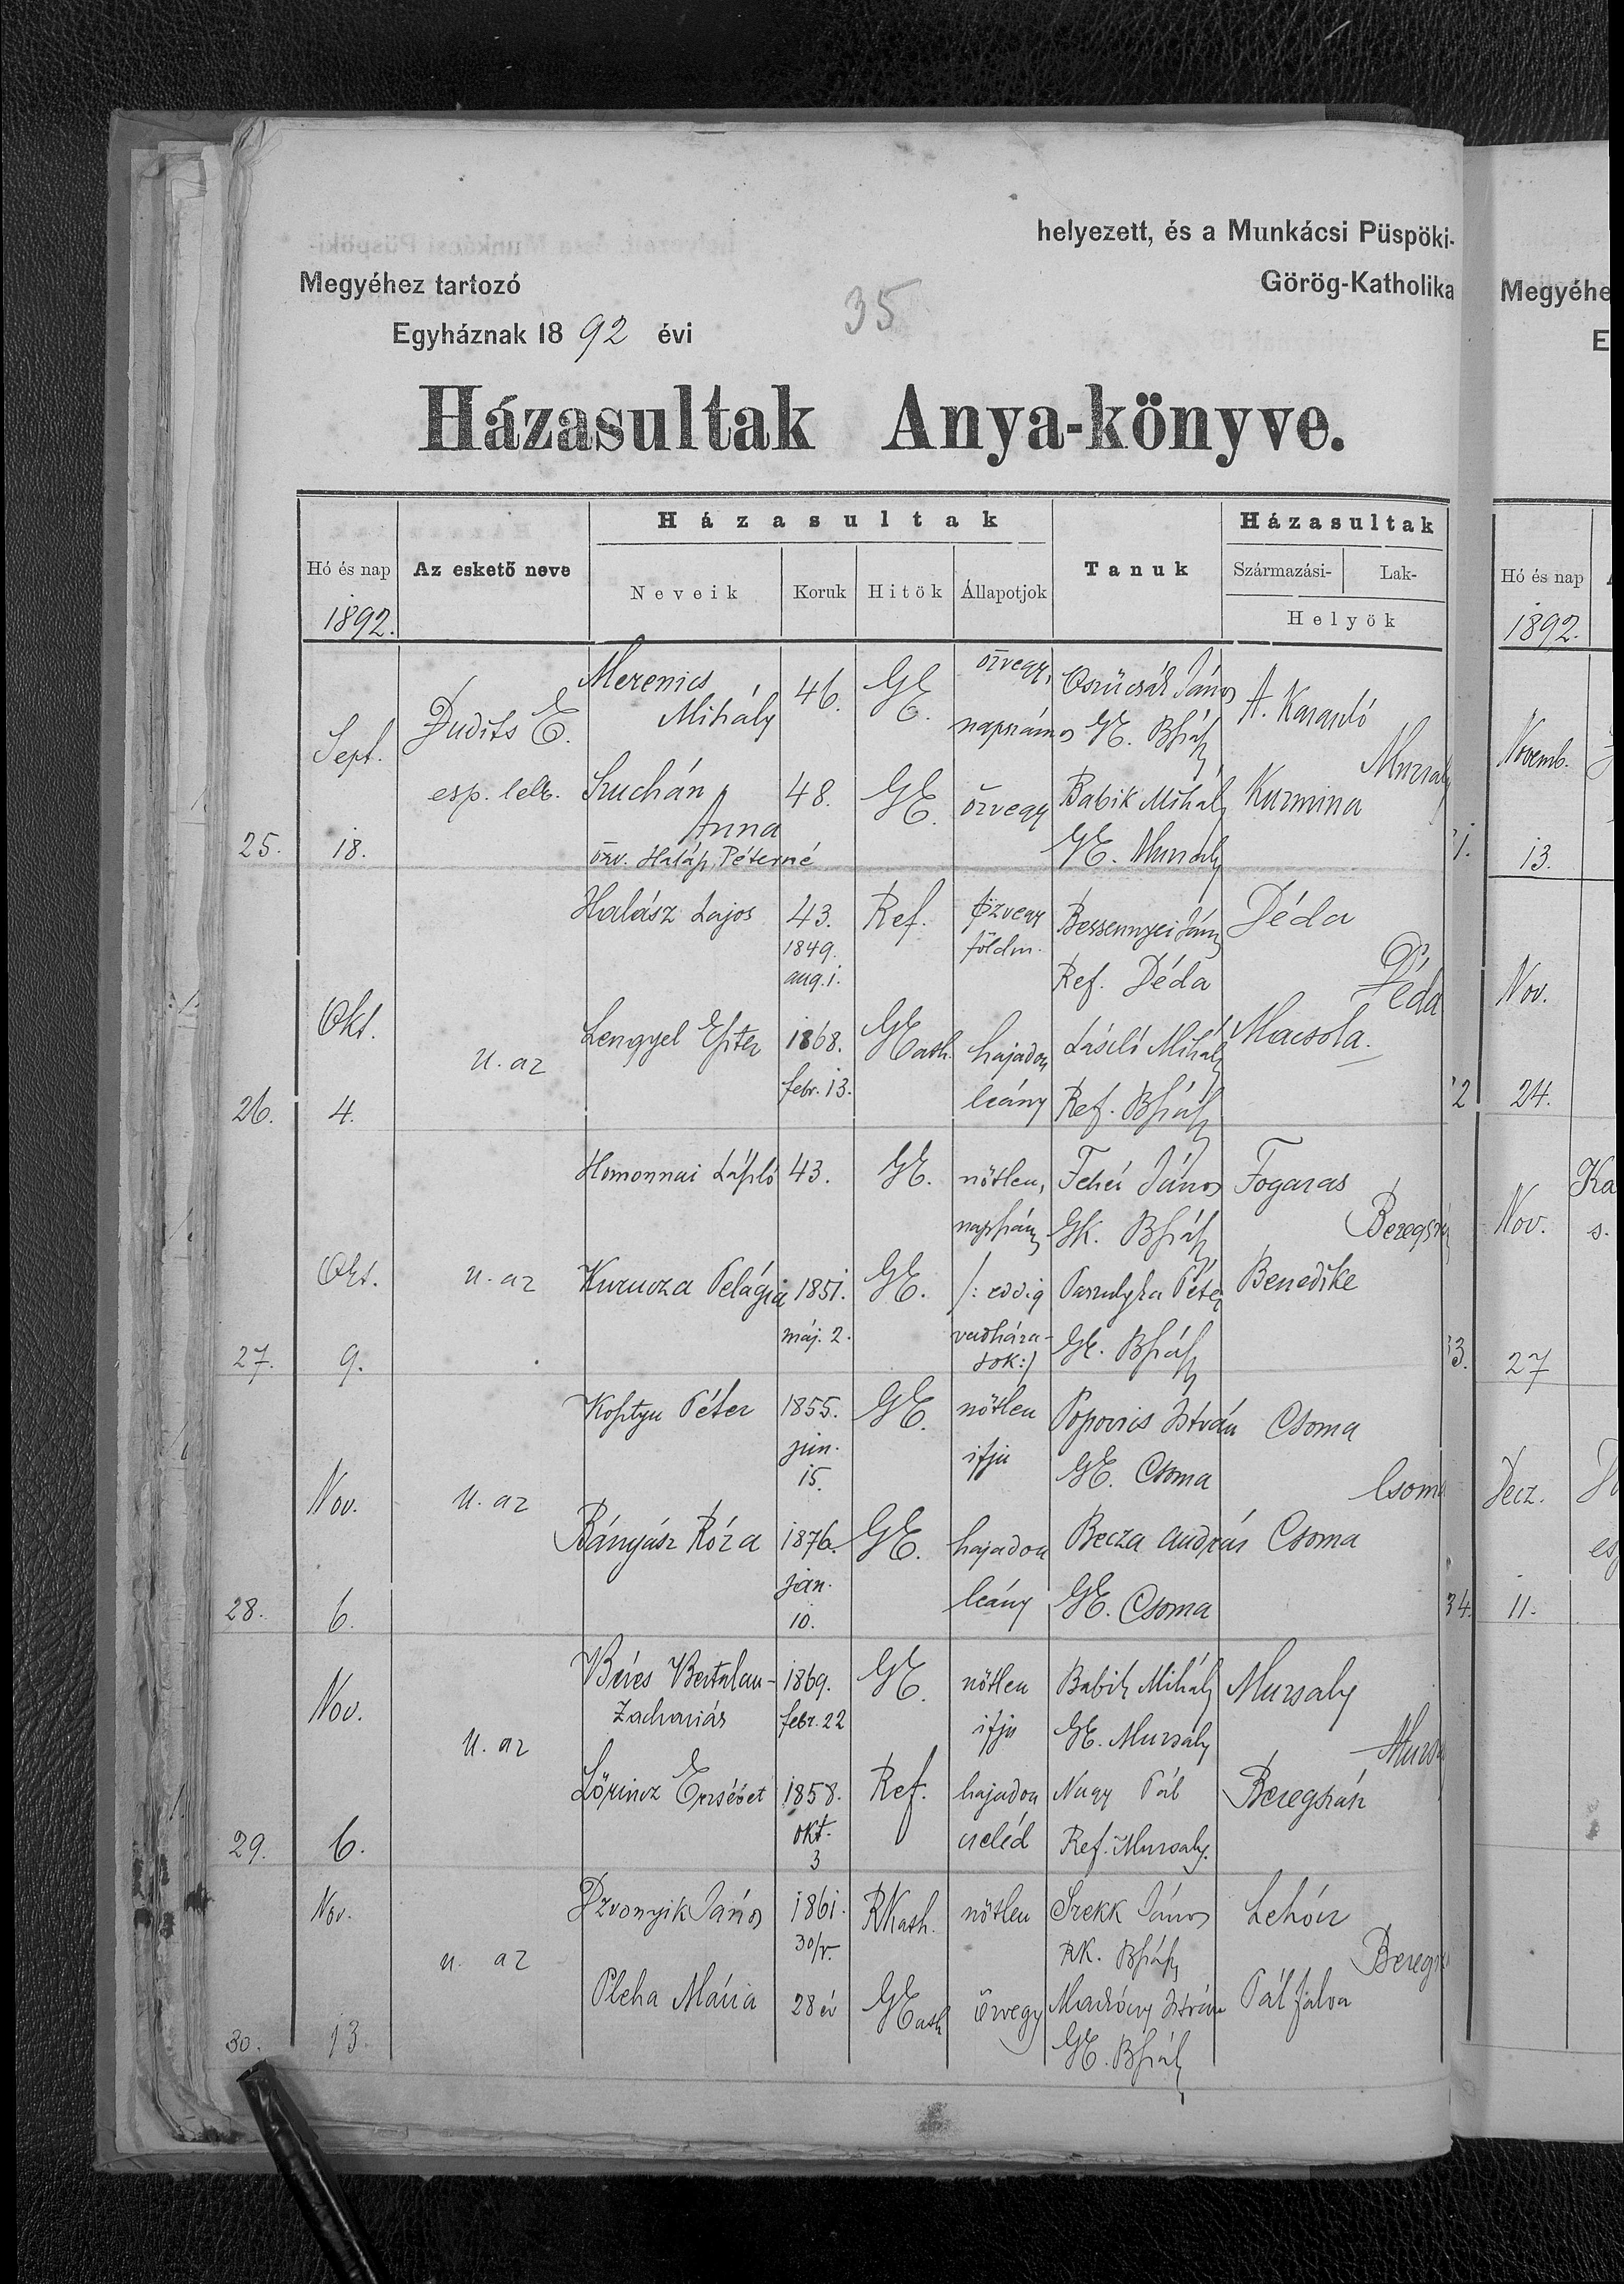 helyezett, és a Munkácsi Püspöki-
Megyéhez tartozó
Görög-Katholika
Egyháznak 1892 évi
35
Házasultak Anya-könyve.
Hó és nap
1892.
Az eskető neve
Házasultak
Neveik
Koruk
Hitök
Állapotjok
Tanuk
Házasultak
Származási-
Lak-
Helyök
25.
Sept.
18.
Dudits E.
esp. lelk.
Merenics
Mihály
46.
GE.
özvegy,
napszámos
János
GE. BSzász
A. Karaszló
Mursaly
Suchán
Anna
özv. Haláp Péterné
48.
GE.
özvegy
Babik Mihály
GE. Mursaly
Kuzmina
26.
Okt.
4.
U. az
Halász Lajos
43.
1849.
aug. 1.
Ref.
özvegy
földm.
Bessenyei János
Ref. Déda
Déda
Déda
Lengyel Eszter
1868.
febr. 13.
GEath.
hajadon
leány
László Mihály
Ref. BSzász
Macsola.
27.
Okt.
9.
u. az
Homonnai László
43.
GE.
nőtlen,
napszám
Fehér János
GK. BSzász
Fogaras
Beregszász
Kurucza Pelágia
1851.
máj. 2.
GE.
/: eddig
vadháza-
sok :/
Paszulyka Péter
GE. BSzász
Benedike
28.
Nov.
6.
U. az
Kosztyu Péter
1855.
jún.
15.
GE.
nőtlen
ifju
Popovics István
GE. Csoma
Csoma
Csoma
Bányász Róza
1876.
jan.
10.
GE.
hajadon
leány
Becza András
GE. Csoma
Csoma
29.
Nov.
6.
U. az
Béres Bertalan-
Zachariás
1869.
febr. 22
GE.
nőtlen
ifju
Babik Mihály
GE. Mursaly
Mursaly
Lőrincz Erzsébet
1858.
okt.
3
Ref.
hajadon
cseléd
Nagy Pál
Ref. Mursaly.
Beregszász
30.
Nov.
13.
u. az
Dzvonyik János
1861.
30/V.
RKath.
nőtlen
Szekk János
RK. BSzász
Lehócz
Pleha Mária
28 év
GEath
özvegy
István
GE. BSzász
Pálfalva
Megyéhe
E
Hó és nap
1892.
Novemb.
13.
Nov.
24.
Nov.
27
Ka
s.
Decz.
34.
11.